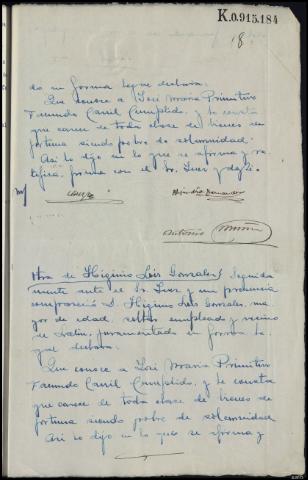 K.0.915.184
18
do en forma legal declara:
Que conoce a José Maria Primitivo
Facundo Carril Cumplido, y le consta
que carece de toda clase de bienes de
fortuna siendo pobre de solemnidad.
Asi lo dijo en lo que se afirma y ra-
tifica, firma con el Sr. Juez y doy fé.
Antonio
Otra de Higinio Lois Gonzales/ Seguida
mente ante el Sr. Juez y mi presencia
compareció D. Higinio Lois Gonzales, ma
yor de edad, empleado y vecino
de juramentado en forma le
gal declara:
Que conoce a José Maria Primitivo
Facundo Carril Cumplido, y le consta
que carece de toda clase de bienes de
fortuna siendo pobre de solemnidad
Asi lo dijo en lo que se afirma y